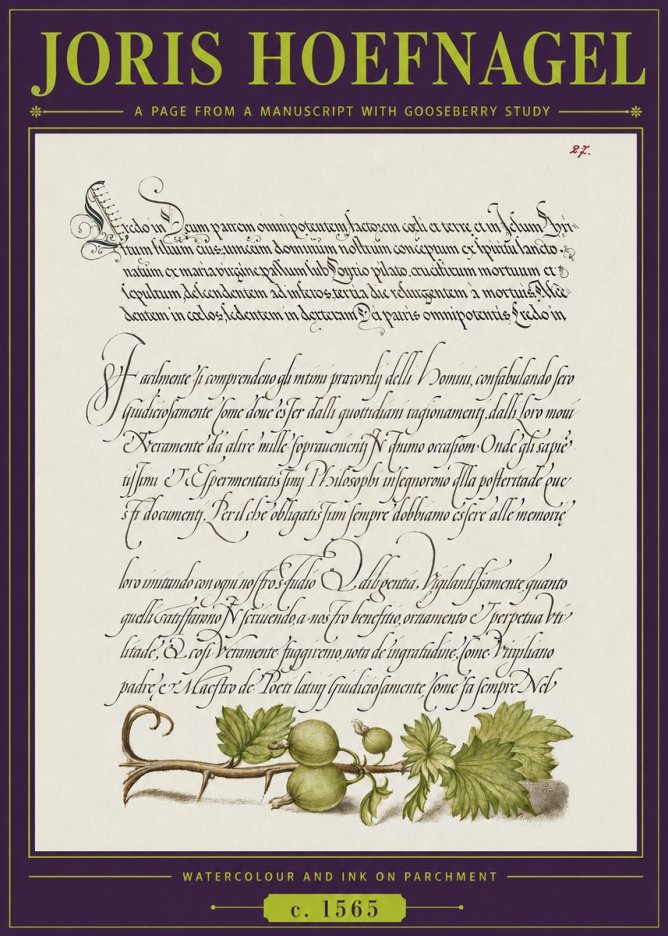 JORIS HOEFNAGEL
A PAGE FROM A MANUSCRIPT WITH GOOSEBERRY STUDY
27.
Credo in Deum patrem omnipotentem factorem cœli et terre et in Jesum Chri-
stum filium eius unicum dominum nostrum conceptum ex spiritu sancto
natum ex maria virgine passum sub Pontio pilato, crucifixum mortuum et
sepultum, descendentem ad inferos, tertia die resurgentem à mortuis,
dentem in cœlos, sedentem in dexteram Dei patris omnipotentis Credo in
Facilmente si comprendeno gli intimi precordij delli Homini, confabulando sero
Giudiciosamente Come doue esser dalli quottidiani ragionamenti, dalli loro moui
Veramente da altre mille soprauenienti N animo occasioni. Onde gli sapiē
tissimi & Esperimentatissimi Philosophi insegnorono alla posteritade que
sti documenti. Per il che obligatissimi sempre dobbiamo essere alle memorie
loro imitando con ogni nostro studio & diligentia. Vigilantissamente quanto
quelli scriuendo, a nostro benefitio, ornamento & perpetua vti
litade, & cosi Veramente fuggiremo, nota de ingratitudine, Come Virgiliano
padre, e Maestro de Poeti latinij Giudiciosamente, Come fa sempre Nel
WATERCOLOUR AND INK ON PARCHMENT
c. 1565